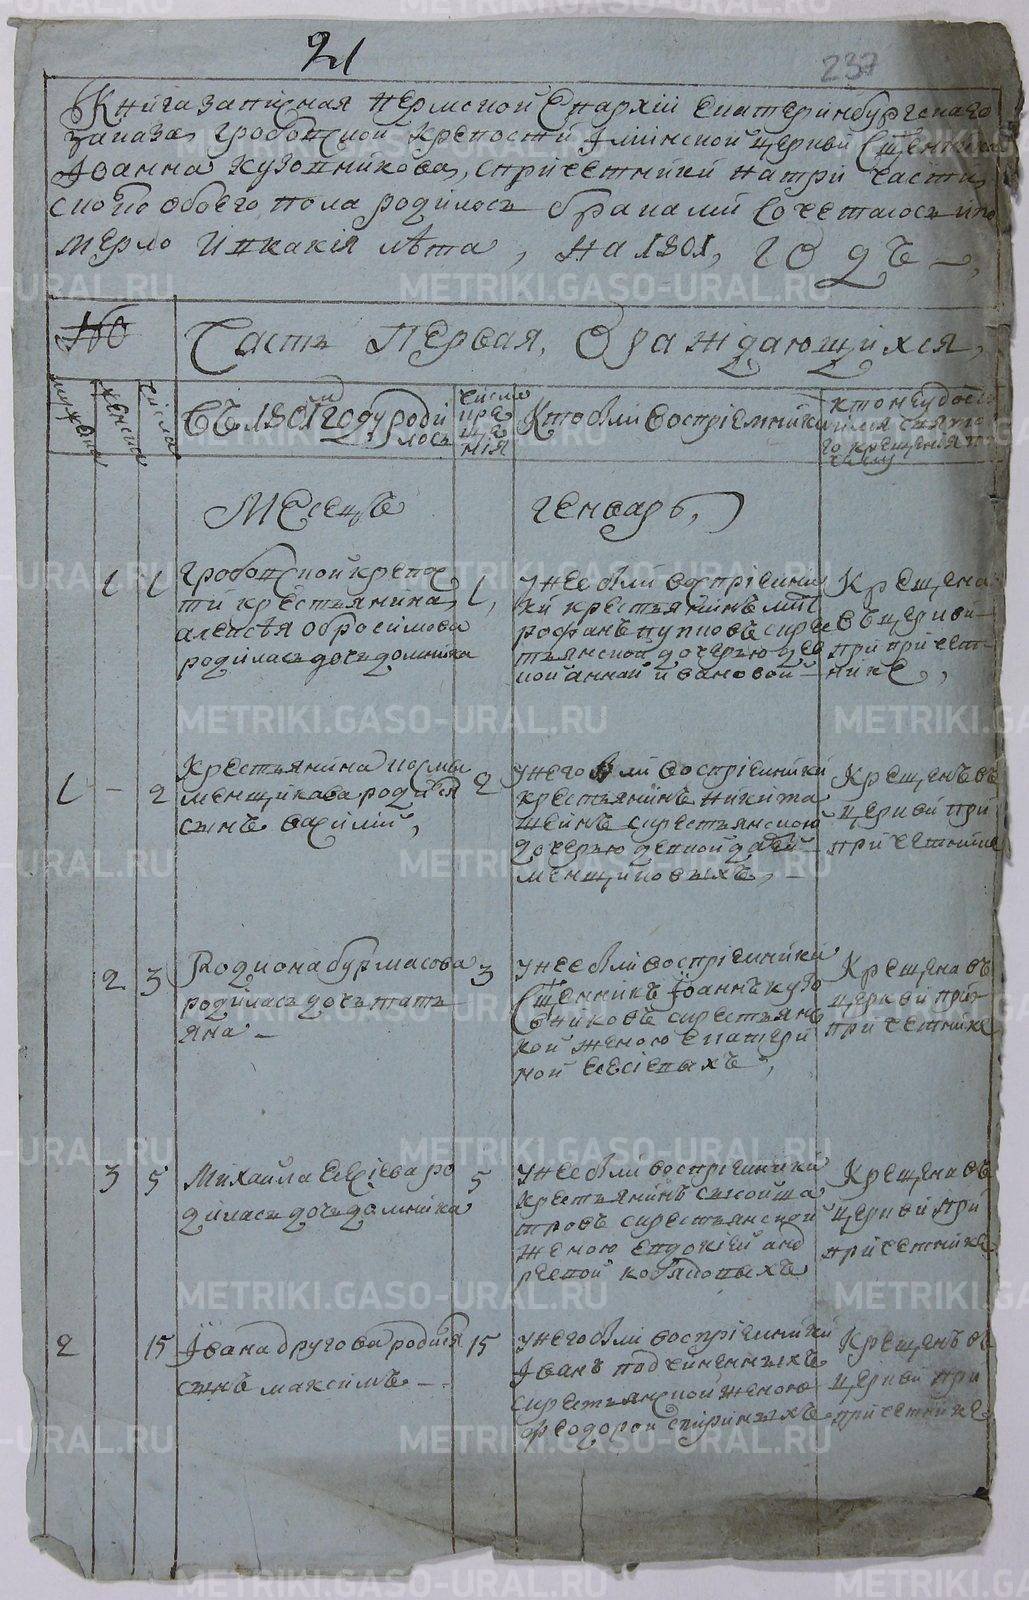 21
237
Книга записная Пермской Епархии Екатеринбургскаго
заказа Гробовской крепости Илiинской церкви Сщенника
Iоанна Кузовникова, спричетники на три части
сколко обоего пола родилось браками сочеталось ипо
мерло и в какiя лѣта, на 1801, годъ
№
Часть Первая, О раждающихся,
мужеска
женска
числа
Въ 1801м году роди
лось
числа
кре
ще
нiя
Кто были воспрiемники
кто не удосто
ился свято
го крещения
Месецъ
генварь,
1
1
Гробовской крепос
ти крестьянина
алексѣя обросимова
родилась дочь домника
1,
у нее были воспрiемни
ки крестьянинъ мит
рофанъ пупковъ скрес
тьянской дочерью
анной ивановой
Крещена
въ церкви
при причет
нике,
1
2
Крестьянина козмы
менщикова родился
сынъ василiй,
2
у него были воспрiемники
крестьянинъ никита
скрестьянской
дочерью
менщиковыхъ,
Крещенъ въ
церкви при
причетнике
2
3
Родиона бурмасова
родилась дочь тать
яна
3
у нее были воспрiемники
Сщенникъ Iоаннъ кузо
вниковъ скрестьянс
кой женою екатери
ной
Крещена въ
церкви при
причетнике
3
5
Михайла ро
дилась дочь домника
5
у нее были воспрiемники
крестьянинъ сысой ша
тровъ скрестьянской
женою евдокiей анд
реевой
Крещена въ
церкви при
причетнике
2
15
Iвана другова родился
сынъ максимъ
15
у него были воспрiемники
Iванъ подчиненныхъ
скрестьянской женою
федорой спириныхъ
Крещенъ въ
церкви при
причетнике
METRIKI.GASO-URAL.RU